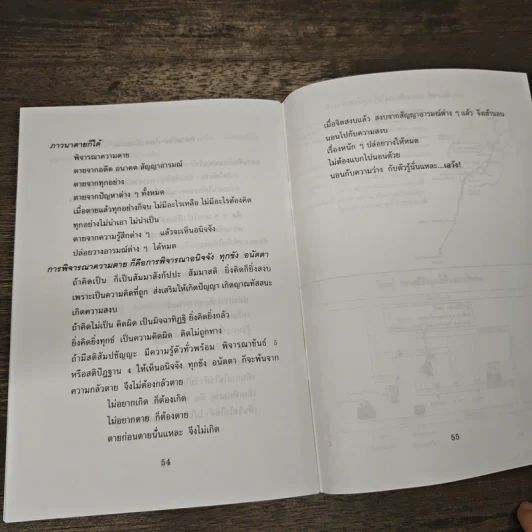 ภาวนาตายก็ได้
พิจารณาความตาย
ตายจากอดีต อนาคต สัญญาอารมณ์
ตายจากทุกอย่าง
ตายจากปัญหาต่าง ๆ ทั้งหมด
เมื่อตายแล้วทุกอย่างก็จบ ไม่มีอะไรเหลือ ไม่มีอะไรต้องคิด
ทุกอย่างไม่น่าเอา ไม่น่าเป็น
ตายจากความรู้สึกต่าง ๆ แล้วจะเห็นอนิจจัง
ปล่อยวางอารมณ์ต่าง ๆ ได้หมด
การพิจารณาความตาย ก็คือการพิจารณาอนิจจัง ทุกขัง อนัตตา
ถ้าคิดเป็น ก็เป็นสัมมาสังกัปปะ สัมมาสติ ยิ่งคิดก็ยิ่งสงบ
เพราะเป็นความคิดที่ถูก ส่งเสริมให้เกิดปัญญา เกิดญาณทัสสนะ
เกิดความสงบ
ถ้าคิดไม่เป็น คิดผิด เป็นมิจฉาทิฏฐิ ยิ่งคิดยิ่งกลัว
ยิ่งคิดยิ่งทุกข์ เป็นความคิดผิด คิดไม่ถูกทาง
ถ้ามีสติสัมปชัญญะ มีความรู้ตัวทั่วพร้อม พิจารณาขันธ์ 5
หรือสติปัฏฐาน 4 ให้เห็นอนิจจัง ทุกขัง อนัตตา ก็จะพ้นจาก
ความกลัวตาย จึงไม่ต้องกลัวตาย
ไม่อยากเกิด ก็ต้องเกิด
ไม่อยากตาย ก็ต้องตาย
ตายก่อนตายนั่นแหละ จึงไม่เกิด
54
เมื่อจิตสงบแล้ว สงบจากสัญญาอารมณ์ต่าง ๆ แล้ว
นอนไปกับความสงบ
เรื่องหนัก ๆ ปล่อยวางให้หมด
ไม่ต้องแบกไปนอนด้วย
นอนกับความว่าง กับตัวรู้นั่นแหละ...เอวัง!
55